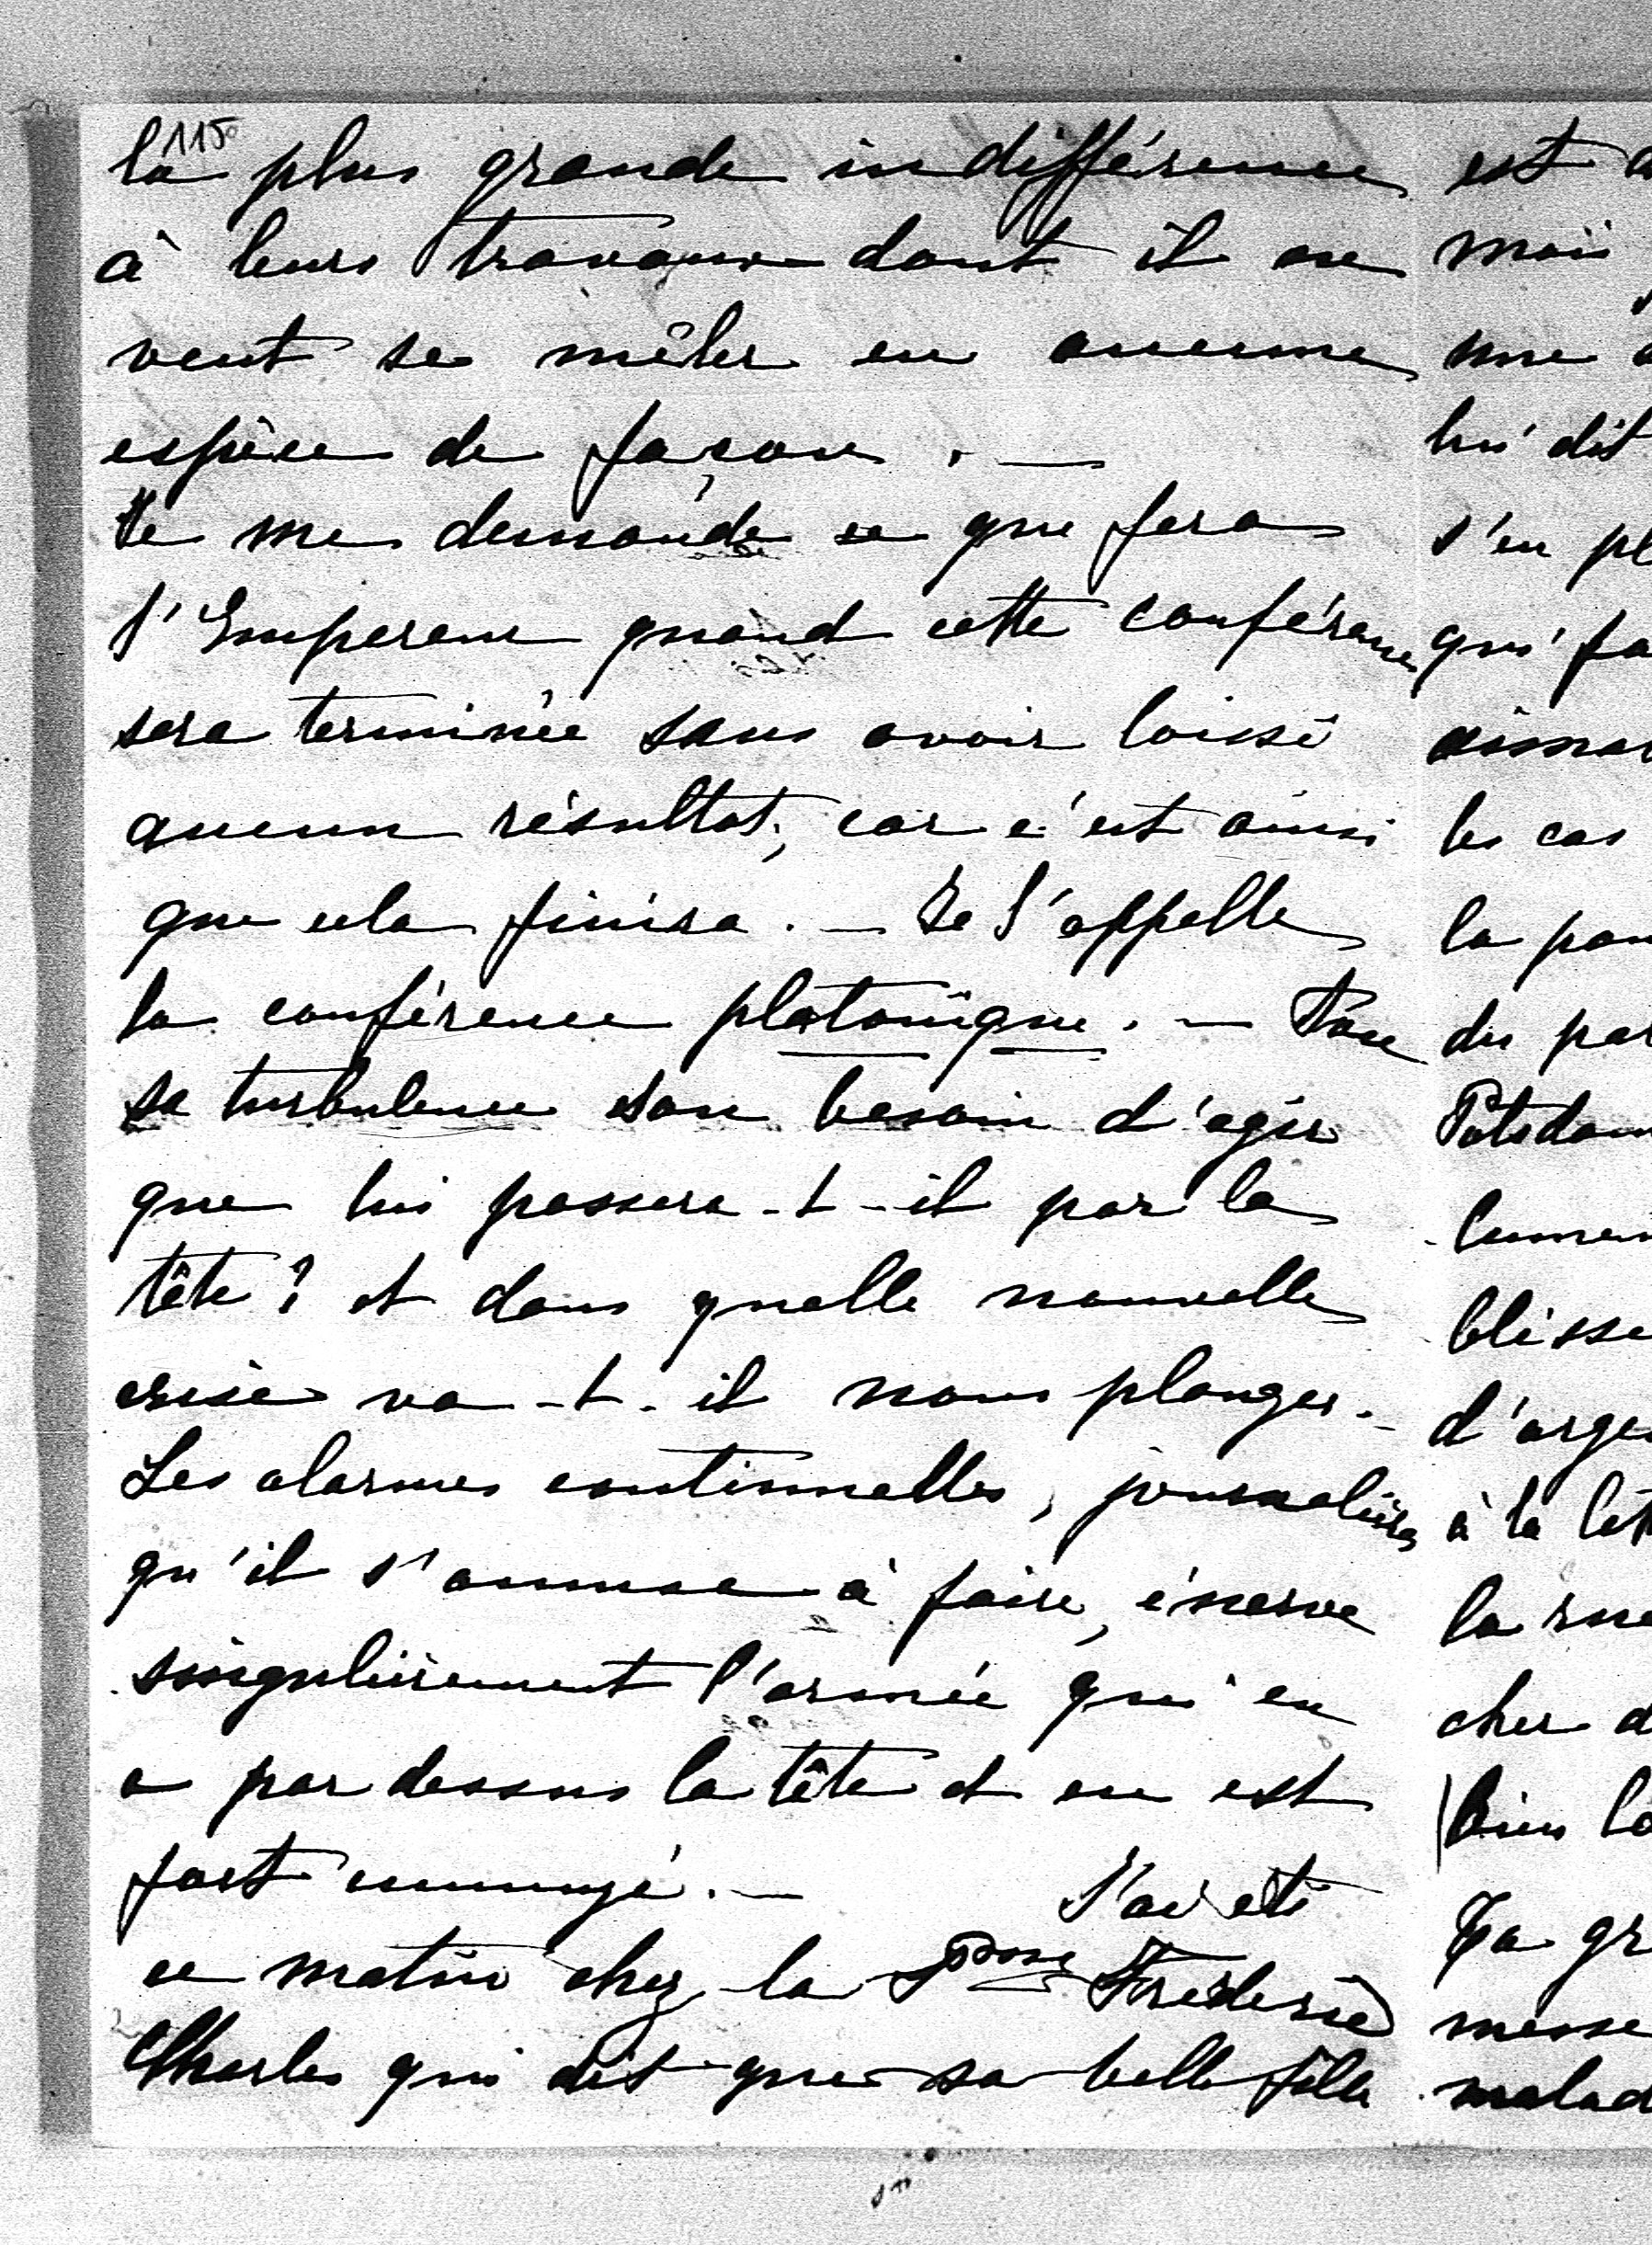 115
la plus grande indifférence
à leurs travaux dont il ne
veut se mêler en aucune
espèce de façon. —
Je me demande ce que fera
l'Empereur quand cette conférence
sera terminée sans avoir laissé
aucun résultat, car c'est ainsi
que cela finira. — Je l'appelle
la conférence platonique. —
sa turbulence son besoin d'agir
que lui passera-t-il par la
tête? et dans quelle nouvelle
crise va-t-il nous plonger. —
Les alarmes continuelles, journalières
qu'il s'amuse à faire, énerve
singulièrement l'armée qui en
a par dessus la tête et en est
fort ennuyé. — J'ai été
ce matin chez la Psse Frederic
Charles qui dit que sa belle fille
est
mois
une
lui dit
s'en pl
qui fa
les cas
la pau
du par
Potsdam
blisse
d'arge
à la let
la rue
cher d
bien lo
Ta gr
messe
malad